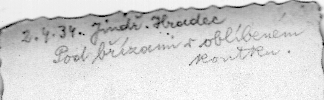 2.4.34. Jindř. Hradec
Pod břízami v oblíbeném
koutku.